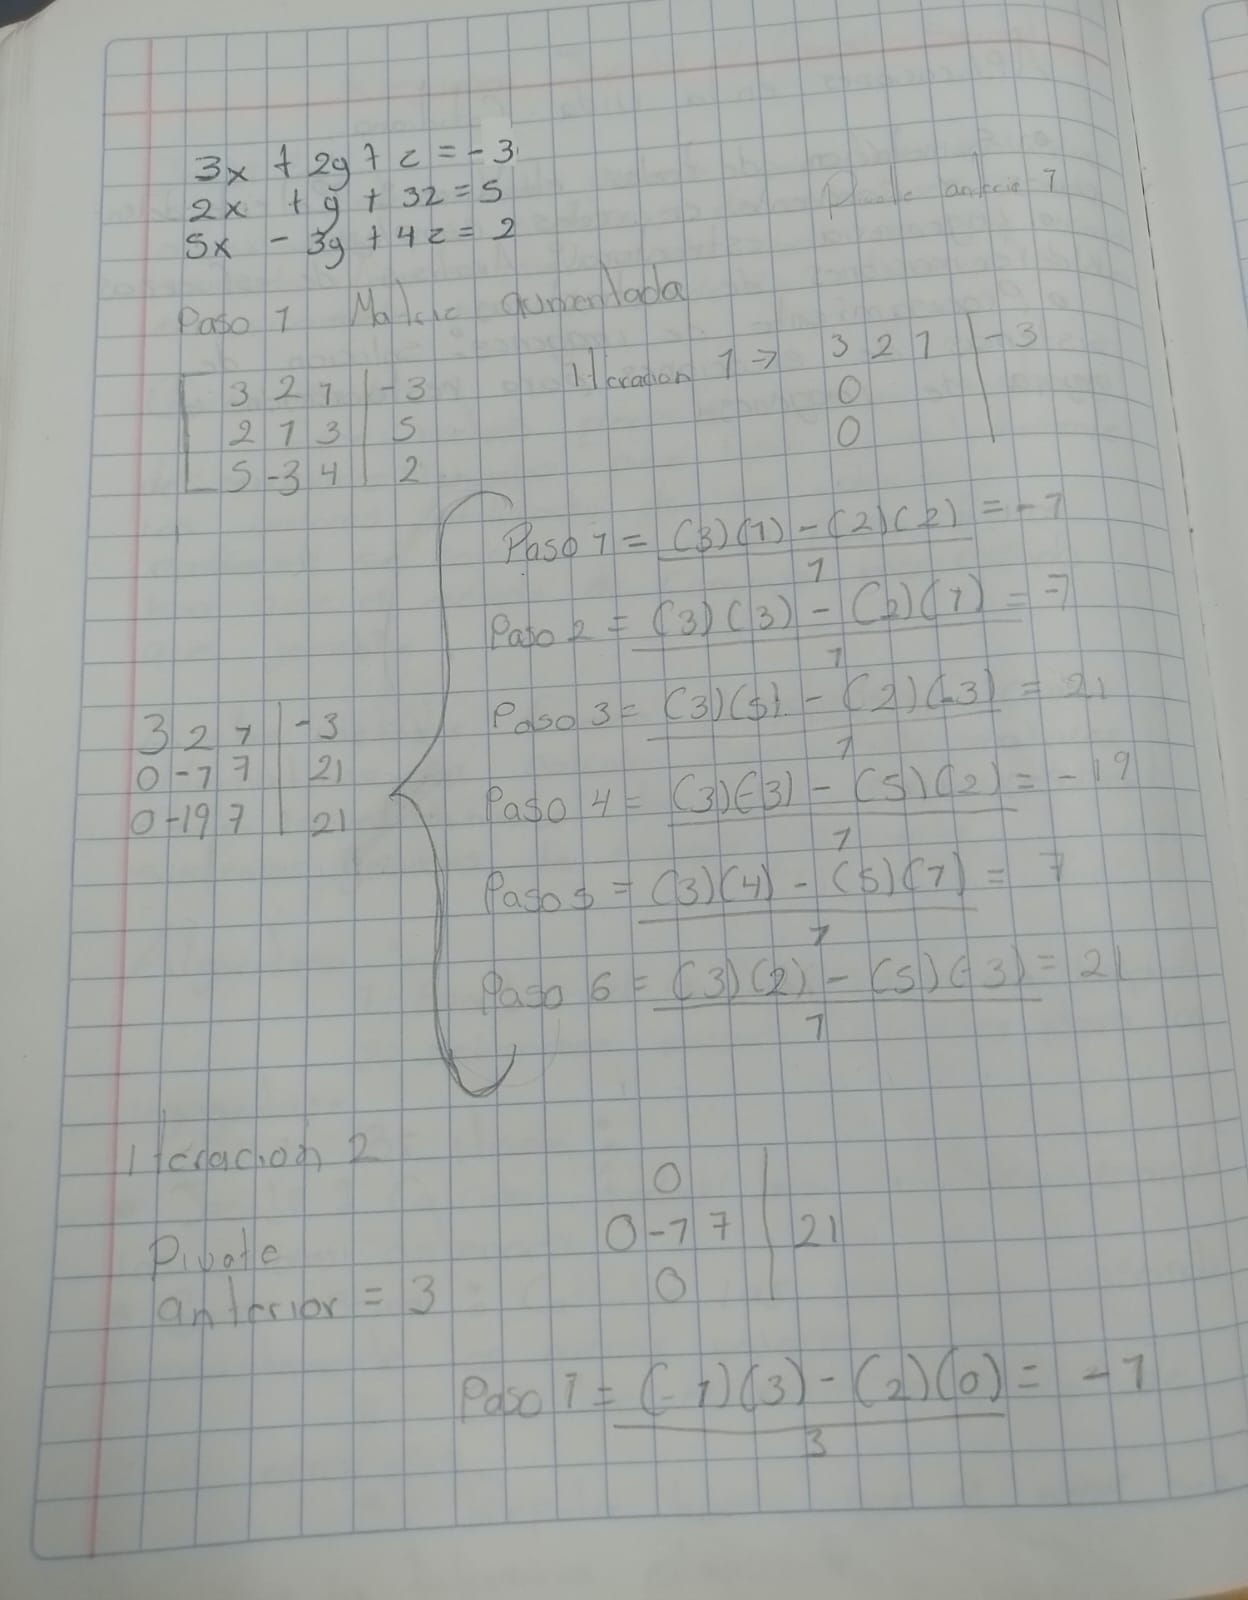 3x + 2y + z = -3
2x + y + 3z = 5
5x - 3y + 4z = 2
Pivote anterior 1
Paso 1 Matriz aumentada
[ 3 2 1 | -3
2 1 3 | 5
5 -3 4 | 2
Iteracion 1 => 3 2 1 | -3
0
0
Paso 1 = (3)(1) - (2)(2) = -1
1
Paso 2 = (3)(3) - (2)(1) = 7
1
Paso 3 = (3)(5) - (2)(-3) = 21
1
Paso 4 = (3)(-3) - (5)(2) = -19
1
Paso 5 = (3)(4) - (5)(1) = 7
1
Paso 6 = (3)(2) - (5)(-3) = 21
1
3 2 1 | -3
0 -1 7 | 21
0 -19 7 | 21
Iteracion 2
Pivote
anterior = 3
0
0 -1 7 | 21
0
Paso 1 = (-1)(3) - (2)(0) = -1
3